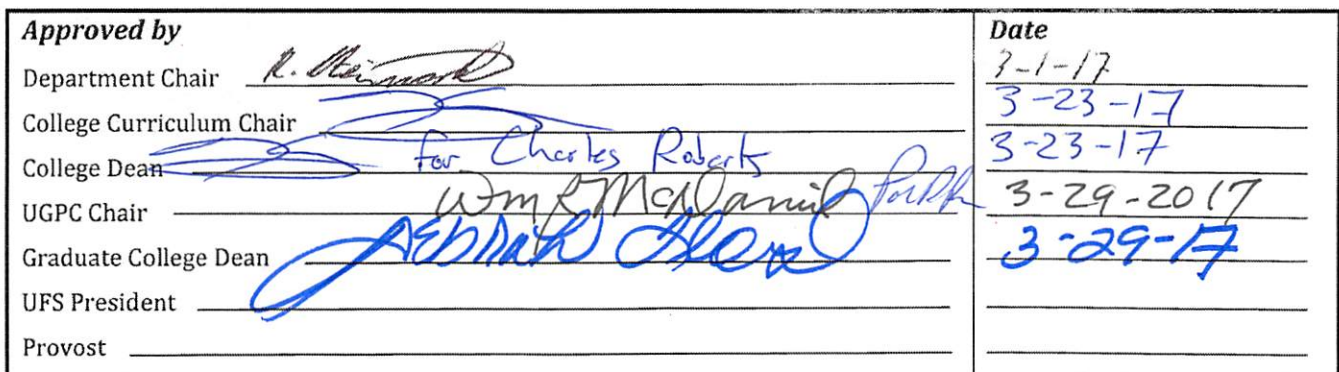 Approved by Date
Department Chair R. 3-1-17
College Curriculum Chair 3-23-17
College Dean for Charles Roberts 3-23-17
UGPC Chair Wm R McDaniel 3-29-2017
Graduate College Dean 3-29-17
UFS President
Provost